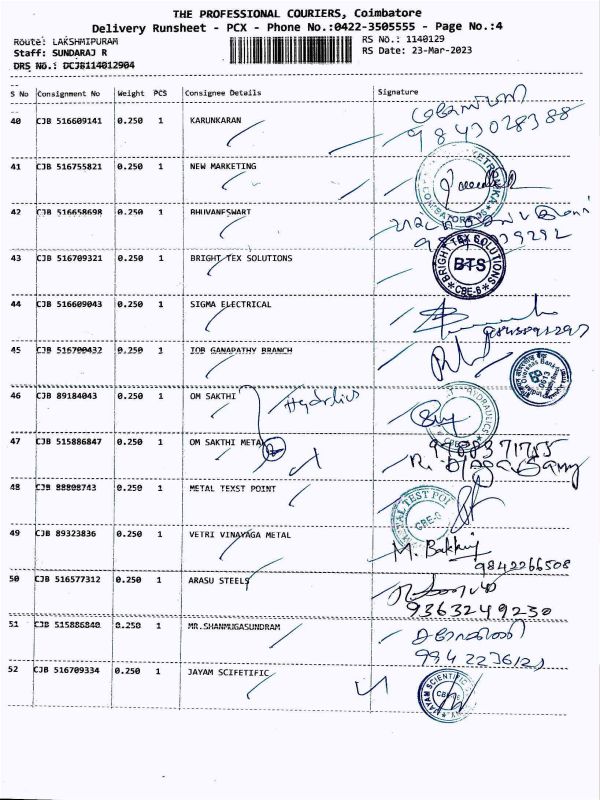 THE PROFESSIONAL COURIERS, Coimbatore
Delivery Runsheet - PCX - Phone No.:0422-3505555 - Page No.:4
Route: LAKSHMIPURAM
RS No.: 1140129
Staff: SUNDARAJ R
RS Date: 23-Mar-2023
DRS No.: DCJB114012904
S No Consignment No Weight PCS Consignee Details Signature
40 CJB 516609141 0.250 1 KARUNKARAN
9843028388
41 CJB 516755821 0.250 1 NEW MARKETING
42 CJB 516658698 0.250 1 BHUVANESWART
43 CJB 516709321 0.250 1 BRIGHT TEX SOLUTIONS
BRIGHT TEX SOLUTIONS
BTS
CBE-6
44 CJB 516609043 0.250 1 SIGMA ELECTRICAL
45 CJB 516700432 1 IOB GANAPATHY BRANCH
46 CJB 89184043 0.250 1 OM SAKTHI
HYDRAULICS
47 CJB 515886847 0.250 1 OM SAKTHI METAL
9788371755
48 CJB 88808743 0.250 1 METAL TEXST POINT
METAL TEST POI
CBE-6
49 CJB 89323836 0.250 1 VETRI VINAYAGA METAL
9842266508
50 CJB 516577312 0.250 1 ARASU STEELS
9363249230
51 CJB 515886840 0.250 1 MR.SHANMUGASUNDRAM
52 CJB 516709334 0.250 1 JAYAM SCIFETIFIC